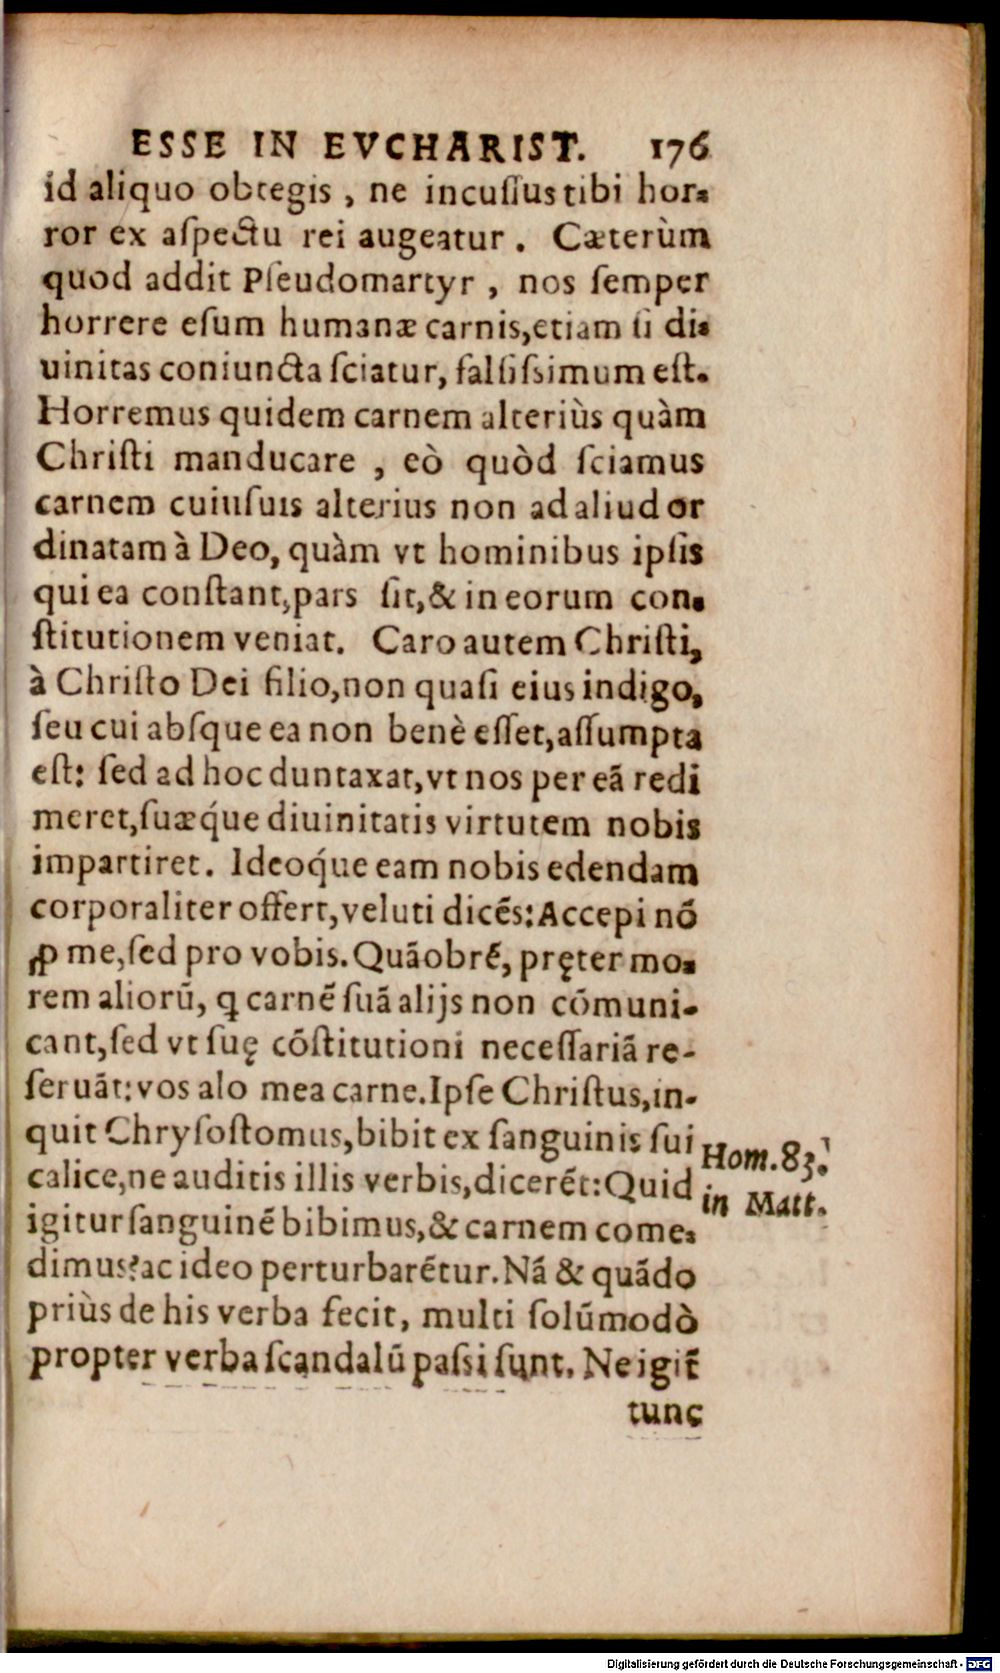 ESSE IN EVCHARIST. 176
id aliquo obtegis, ne incuſſus tibi hor-
ror ex aſpectu rei augeatur. Cæterùm
quod addit Pſeudomartyr, nos ſemper
horrere eſum humanæ carnis, etiam ſi di-
uinitas coniuncta ſciatur, falſiſsimum eſt.
Horremus quidem carnem alteriùs quàm
Chriſti manducare, eò quòd ſciamus
carnem cuiuſuis alterius non ad aliud or
dinatam à Deo, quàm vt hominibus ipſis
qui ea conſtant, pars ſit, & in eorum con-
ſtitutionem veniat. Caro autem Chriſti,
à Chriſto Dei filio, non quaſi eius indigo,
ſeu cui abſque ea non benè eſſet, aſſumpta
eſt: ſed ad hoc duntaxat, vt nos per eã redi
meret, ſuæq́ue diuinitatis virtutem nobis
impartiret. Ideoq́ue eam nobis edendam
corporaliter offert, veluti dicẽs: Accepi nõ
ꝓ me, ſed pro vobis. Quãobrẽ, pręter mo-
rem aliorũ, q carnẽ ſuã alijs non cõmuni-
cant, ſed vt ſuę cõſtitutioni neceſſariã re-
ſeruãt: vos alo mea carne. Ipſe Chriſtus, in-
quit Chryſoſtomus, bibit ex ſanguinis ſui
calice, ne auditis illis verbis, dicerẽt: Quid
igitur ſanguinẽ bibimus, & carnem come-
dimus? ac ideo perturbarẽtur. Nã & quãdo
priùs de his verba fecit, multi ſolũmodò
propter verba ſcandalũ paſsi ſunt. Ne igit̃
tunc
Hom. 83.
in Matt.
Digitalisierung gefördert durch die Deutsche Forschungsgemeinschaft - DFG